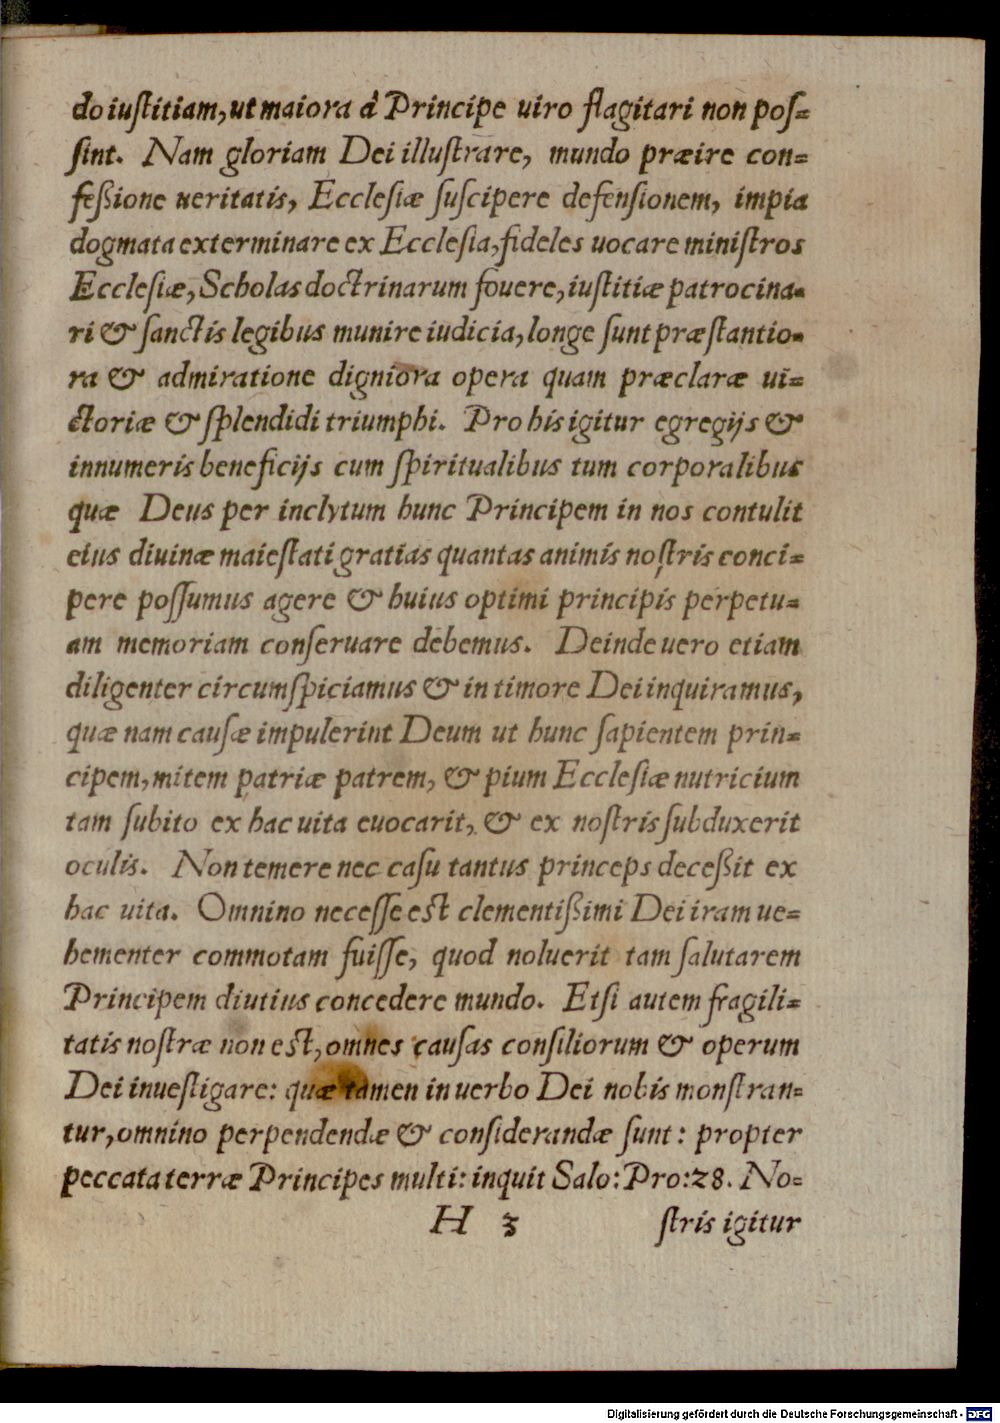 do iuſtitiam, ut maiora à Principe uiro flagitari non poſ=
ſint. Nam gloriam Dei illuſtrare, mundo præire con=
feßione ueritatis, Eccleſiæ ſuſcipere defenſionem, impia
dogmata exterminare ex Eccleſia, fideles uocare miniſtros
Eccleſiæ, Scholas doctrinarum fouere, iuſtitiæ patrocina=
ri & ſanctis legibus munire iudicia, longe ſunt præſtantio=
ra & admiratione digniora opera quam præclaræ ui=
ctoriæ & ſplendidi triumphi. Pro his igitur egregijs &
innumeris beneficijs cum ſpiritualibus tum corporalibus
quæ Deus per inclytum hunc Principem in nos contulit
eius diuinæ maieſtati gratias quantas animis noſtris conci=
pere poſſumus agere & huius optimi principis perpetu=
am memoriam conſeruare debemus. Deinde uero etiam
diligenter circumſpiciamus & in timore Dei inquiramus,
quæ nam cauſæ impulerint Deum ut hunc ſapientem prin=
cipem, mitem patriæ patrem, & pium Eccleſiæ nutricium
tam ſubito ex hac uita euocarit, & ex noſtris ſubduxerit
oculis. Non temere nec caſu tantus princeps deceßit ex
hac uita. Omnino neceſſe eſt clementißimi Dei iram ue=
hementer commotam fuiſſe, quod noluerit tam ſalutarem
Principem diutius concedere mundo. Etſi autem fragili=
tatis noſtræ non eſt, omnes cauſas conſiliorum & operum
Dei inueſtigare: quæ tamen in uerbo Dei nobis monſtran=
tur, omnino perpendendæ & conſiderandæ ſunt: propter
peccata terræ Principes multi: inquit Salo: Pro: 28. No=
H 3 ſtris igitur
Digitalisierung gefördert durch die Deutsche Forschungsgemeinschaft - DFG